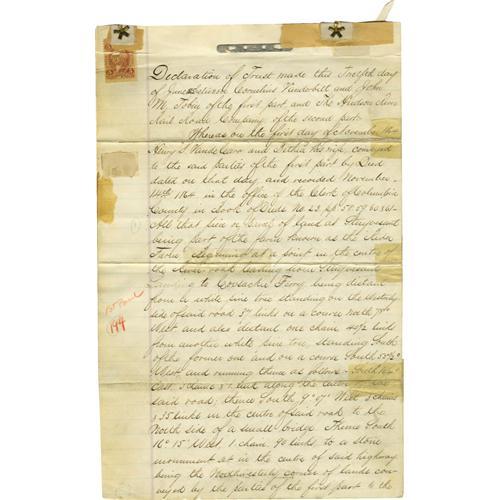 Declaration of Trust made this Twelfth day
of June between Cornelius Vanderbilt and John
M. Tobin of the first part and The Hudson River
Rail Road Company of the second part.
Whereas on the first day of November 1864
Henry and his wife, conveyed
to the said parties of the first part by Deed
dated on that day and recorded November
14th 1864 in the office of the Clerk of Columbia
County in Book of Deeds No 23 pp 57. 59. 60 & 61-
All that piece or parcel of land at Stuyvesant
being part of the farm known as the River
Farm Beginning at a point in the centre of
the River road leading from Stuyvesant
Landing to Coxsackie Ferry being distant
from a white pine tree standing on the Westerly
side of said road 57 links on a course North
West and also distant one chain 49½ links
from another white pine tree, standing South
of the former one and on a course South
West and running thence as follows - South
East, 3 chains & 1 link along the centre of the
said road; thence South, 9° 07' West 3 chains
& 35 links in the centre of said road to the
North side of a small bridge Thence South
16° 15' West, 1 chain, 90 links, to a stone
monument at in the centre of said highway
being the Northwesterly corner of lands con-
veyed by the parties of the first part to the
194